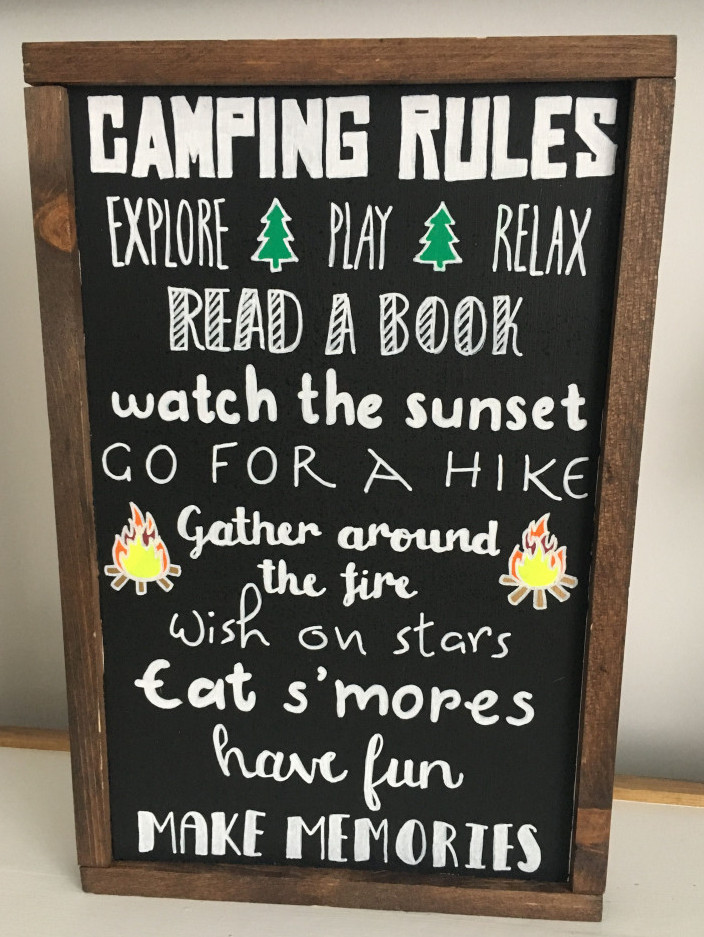 CAMPING RULES
EXPLORE PLAY RELAX
READ A BOOK
watch the sunset
GO FOR A HIKE
Gather around
the fire
Wish on stars
Eat s'mores
have fun
MAKE MEMORIES